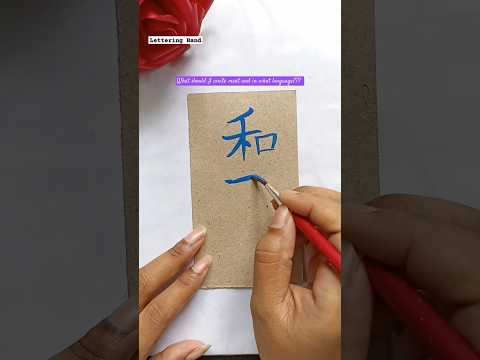 Lettering Hand
What should I write next and in what language???
和
一